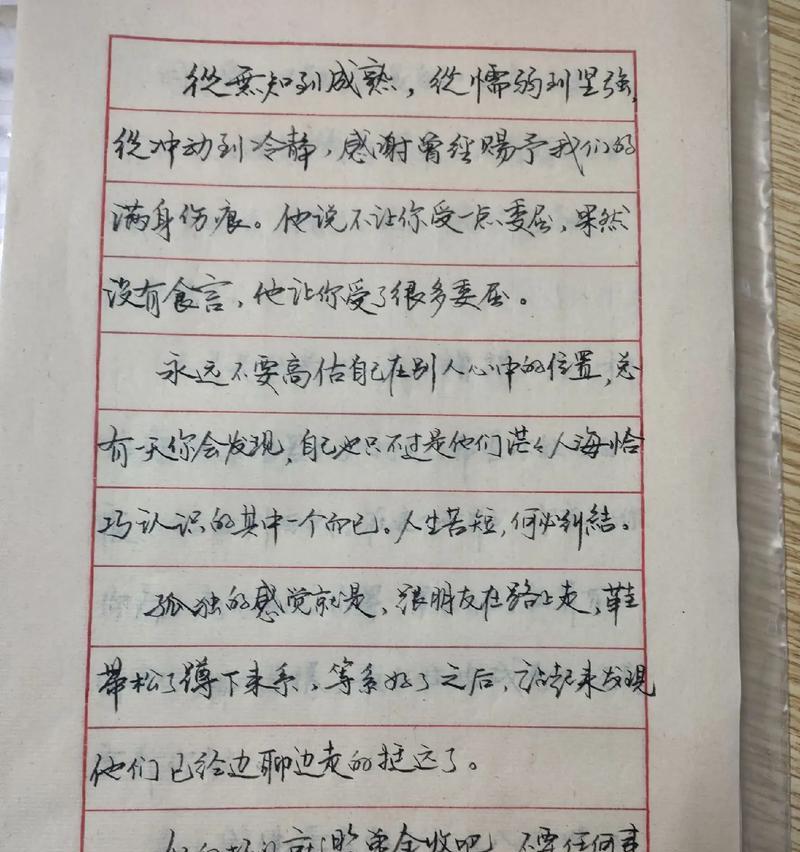 從無知到成熟，從懦弱到坚强，
從冲动到冷静，感谢曾经赐予我们的
满身伤痕。他说不让你受一点委屈，果然
没有食言，他让你受了很多委屈。
永远不要高估自己在别人心中的位置，总
有一天你会发现，自己也只不过是他们茫々人海恰
巧认识的其中一个而已。人生苦短，何必纠結。
孤独的感觉就是，跟朋友在路上走，鞋
带松了蹲下来系，等系好了之后，站起来发现
他们已经边聊边走的挺远了。
全收吧，不要任何事